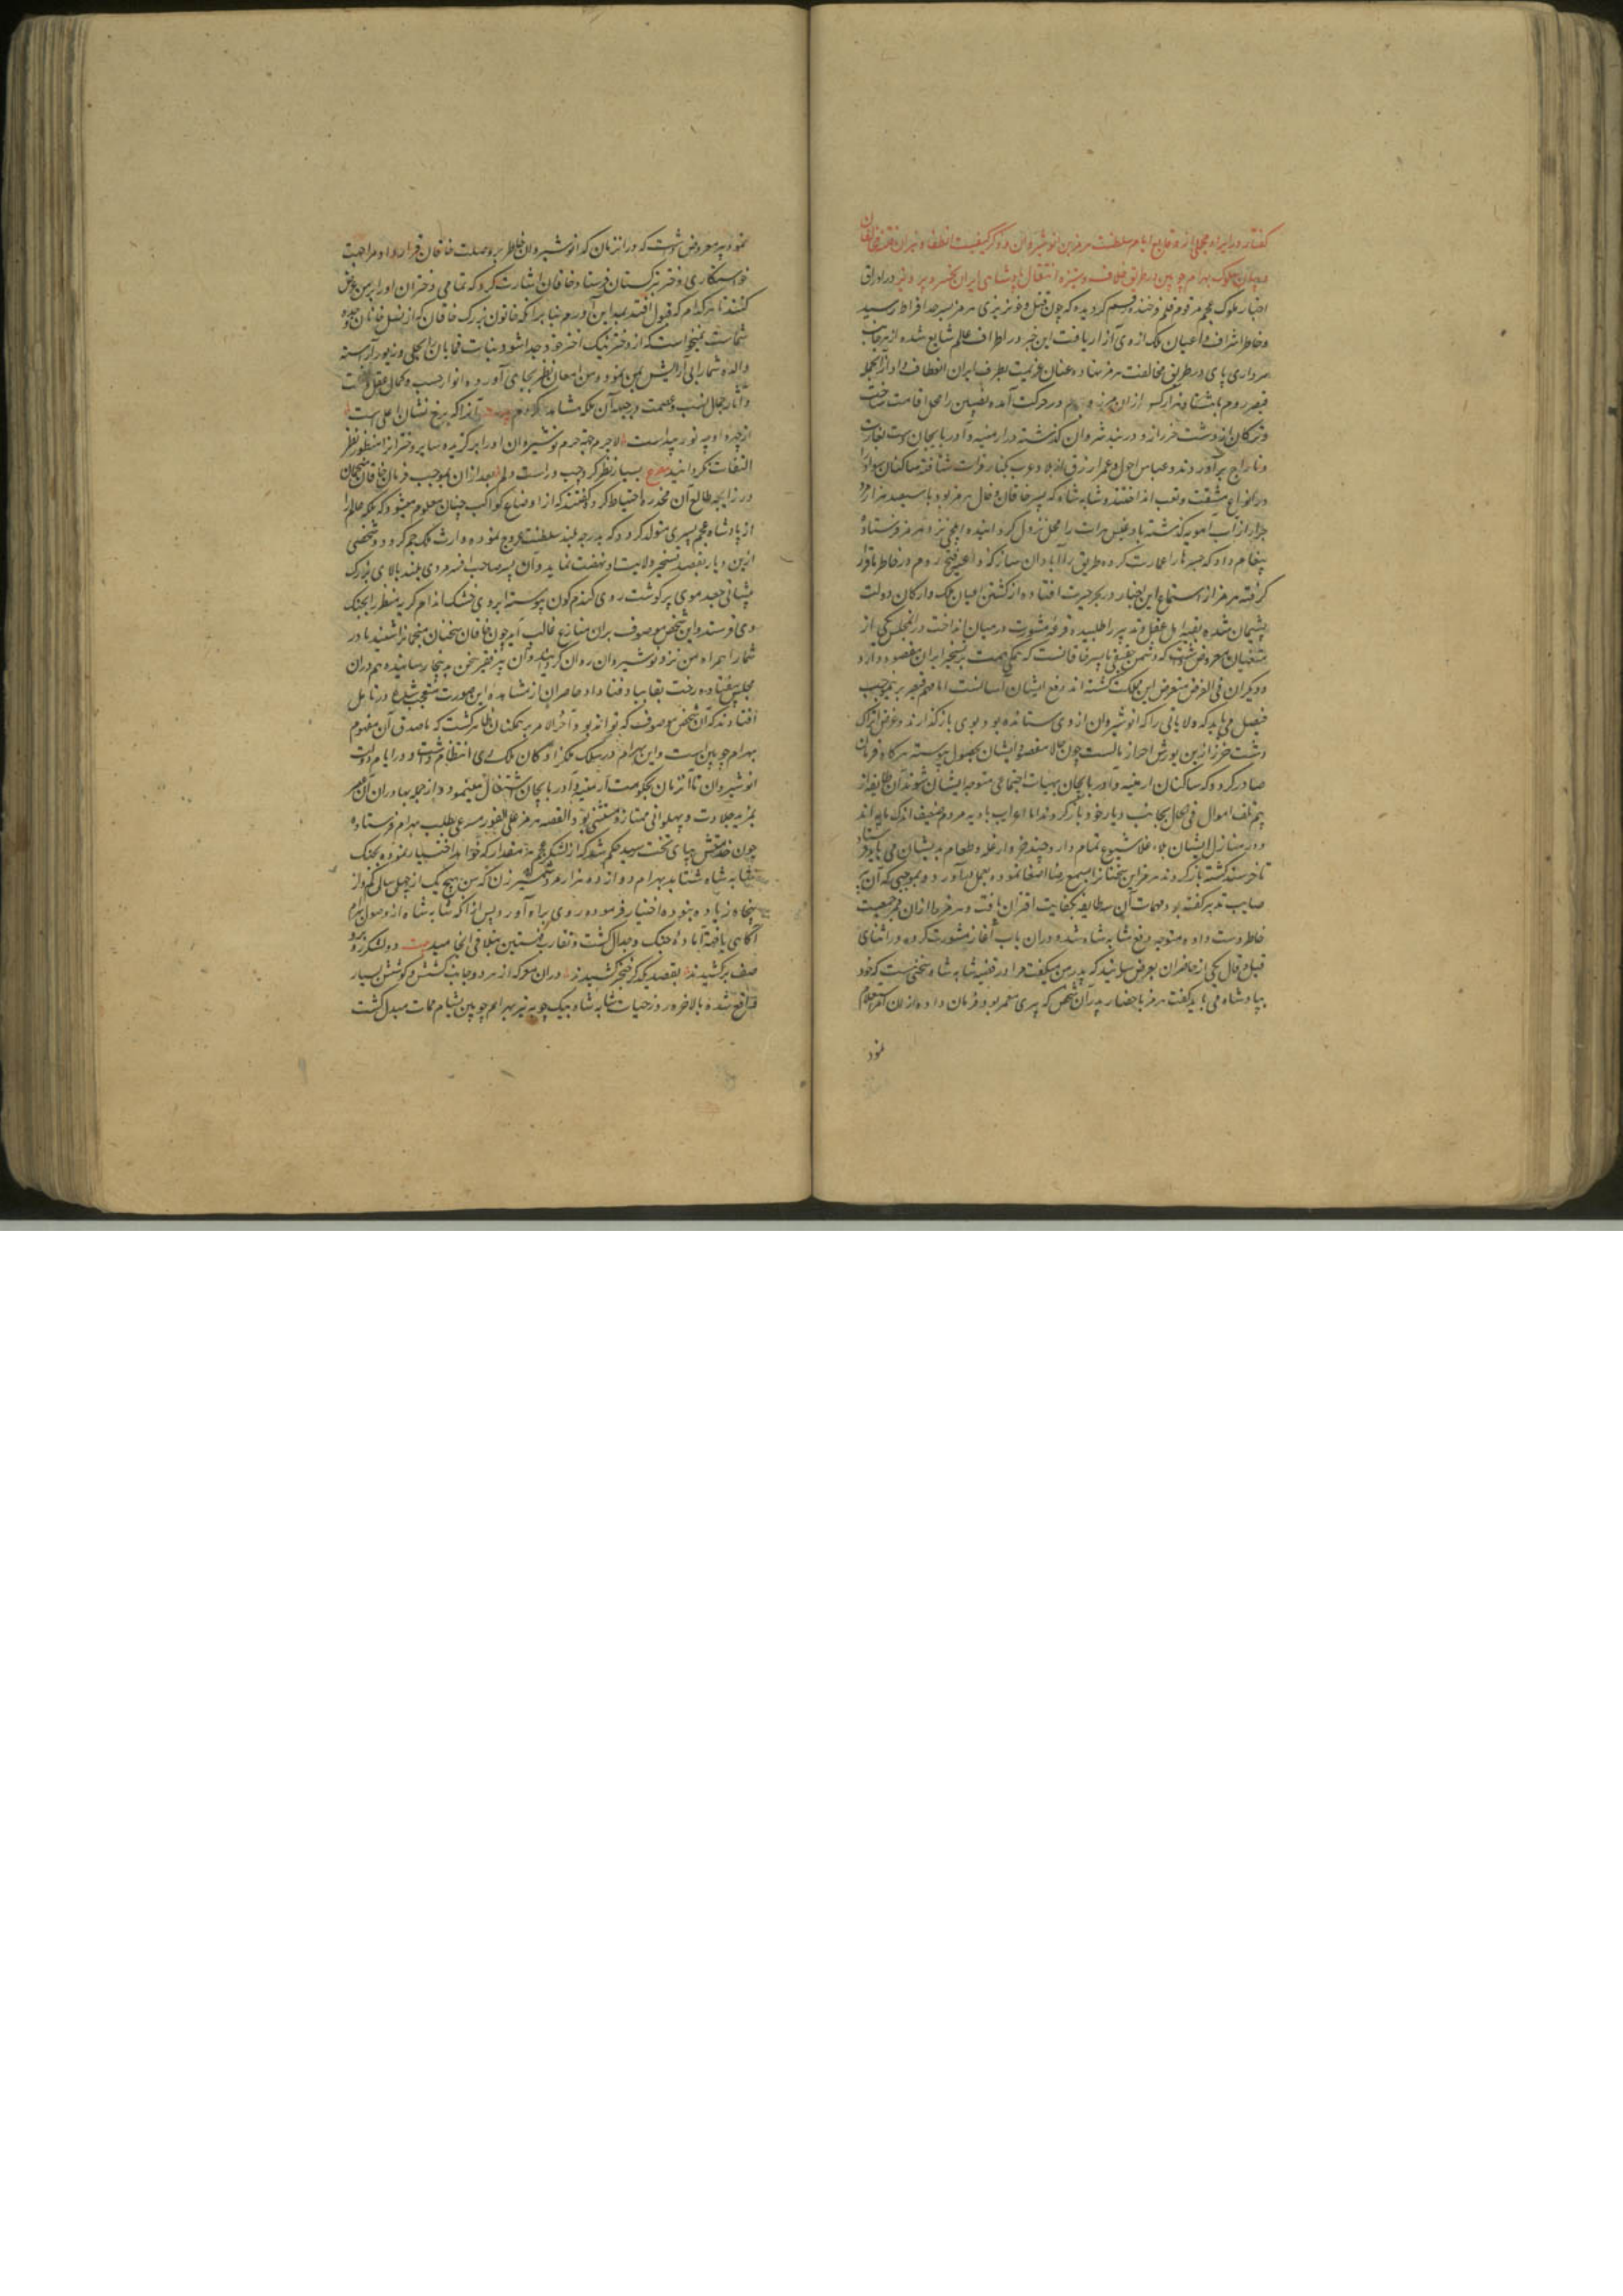 گفتار در ایراد مجملی از وقایع ایام سلطنت هرمز بن نوشیروان و ذکر کیفیت انطفاء نیران فتنه خاقان
و بیان سلوک بهرام چوبین در طریق خلاف و ستیز و انتقال پادشاهی ایران بخسرو پرویز در اوراق
اخبار ملوک عجم مرقوم قلم فرخنده رقم گردیده که چون قتل و خونریزی هرمز بسرحد افراط رسید
و خاطر اشراف و اعیان ملک از وی آزار یافت این خبر در اطراف عالم شایع شده از هر جانب
سرداری پای در طریق مخالفت هرمز نهاده عنان عزیمت بطرف ایران انعطاف داد از آنجمله
قیصر روم با هشتاد هزار کس از ان مرز و بوم در حرکت آمده نصیبین را محل اقامت ساخت
و ترکان از دشت خزر از دربند شروان گذشته در ارمنیه و آذربایجان دست بغارت
و تاراج برآوردند و عباس احول و عمر ازرق از بلاد عرب بکنار فرات شتافته ساکنان سواد را
در انواع مشقت و تعب انداختند و شابه شاه که پسر خاقان و خال هرمز بود با سیصد هزار مرد
جرار از آب آمویه گذشته بادغیس هرات را محل نزول گردانیده ایلچی نزد هرمز فرستاده
پیغام داد که جسرها را عمارت کرده طریق را آبادان ساز که داعیه فتح روم در خاطر قرار
گرفته هرمز از استماع این اخبار در بحر حیرت افتاده از کشتن اعیان ملک و ارکان دولت
پشیمان شده بقیه اهل عقل و تدبیر را طلبیده قرعه مشورت در میان انداخت در آن مجلس یکی از
متعینان معروض داشت که دشمن حقیقی ما پسر خاقانست که همگی همت بر تسخیر ایران مقصور دارد
و دیگران فی الغرض متعرض این مملکت گشته اند و دفع ایشان آسانست اما مهم قیصر برینموجب
فیصل می یابد که ولایاتی را که انوشیروان از وی ستانده بود بوی بازگذارند و غرض اتراک
دشت خزر ازین یورش احراز مالست چون حالا مقصود ایشان بحصول پیوسته هرگاه فرمان
صادر گردد که ساکنان ارمنیه و آذربایجان بهیات اجتماعی متوجه ایشان شوند آن طایفه از
بیم تلف اموال فی الحال بجانب دیار خود بازگردند اما اعراب بادیه مردم ضعیف اندک مایه اند
و در منازل ایشان بلاء غلا شیوع تمام دارد چند خروار غله و طعام بدیشان می باید فرستاد
تا خرسند گشته بازگردند هرمز این سخنان را بسمع رضا اصغا نموده بعمل درآورد و بموجبی که آن پیر
صایب تدبیر گفته بود مهمات آن سه طایفه بکفایت اقتران یافت و هرمز را از ان ممر جمعیت
خاطر دست داده متوجه دفع شابه شاه شد و دران باب آغاز مشورت کرده در اثنای
قیل و قال یکی از حاضران بعرض رسانید که پدر من میگفت مرا در قضیه شابه شاه سخنی هست که خود
بپادشاه می باید گفت هرمز باحضار پدر آن شخص که پیری معمر بود فرمان داده از ان
نمود
نمود پیر معروض داشت که در انزمان که انوشیروان خاطر بر مواصلت خاقان قرار داد و مرا جهت
خواستگاری دختر بترکستان فرستاد خاقان اشارت کرد که تمامی دختران او را بر من عرض
کنند تا هر کدام که قبول افتد بمداین آورم بنابر آنکه خاتون بزرگ خاقان که از نسل خانان و جده
شماست نمیخواست که از دختر نیک اختر خود جدا شود بنات قمایان را بحلی و زیور آراسته
والده شما را بی آرایش بمن نمود و من امعان نظر بجای آورده انوار حسب و کمال عقل
و آثار جمال نسب و عصمت در جبهه آن ملکه مشاهده کردم بیت آنرا که برخ نشان اعلی است
از چهره او چو نور پیداست لاجرم جهة حرم نوشیروان او را برگزیده سایر دختران را منظور نظر
التفات نگردانیدم مصرع بسیار نظر کردم چپ و راست ولی بعد از ان بموجب فرمان خاقان منجمان
در زایجه طالع آن مخدره احتیاط کرده گفتند که از اوضاع کواکب چنان معلوم میشود که ملکه عالم را
از پادشاه عجم پسری متولد گردد که بدرجه بلند سلطنت عروج نموده وارث ملک جم گردد و شخصی
ازین دیار بقصد تسخیر ولایت او نهضت نماید و آن پسر صاحب افسر مردی بلند بالای بزرگ
پیشانی جعد موی پر گوشت روی گندم گون پیوسته ابروی خشک اندام کریه منظر را بجنگ
وی فرستد و این شخص موصوف بران منازع غالب آید چون خاقان سخنان منجمان را شنید مادر
شما را همراه من نزد نوشیروان روان گردانید و آن پیر فقیر سخن بدینجا رسانیده هم دران
مجلس بیفتاد و رخت بقا بباد فنا داد حاضران از مشاهده این صورت متعجب شده در تامل
افتادند که آن شخص موصوف که تواند بود و آخر الامر بر همگنان ظاهر گشت که ماصدق آن مفهوم
بهرام چوبین است و این بهرام در سلک ملکزادگان ملک ری انتظام داشت و در ایام دولت
انوشیروان تا آنزمان بحکومت ارمنیه و آذربایجان اشتغال مینمود و از جمله بهادران آن عصر
بمزید جلادت و پهلوانی ممتاز و مستثنی بود القصه هرمز علی الفور مسرعی بطلب بهرام فرستاده
چون خدمتش بپای تخت رسید حکم شد که از لشکر عجم هر مقدار که خواهد اختیار نموده بجنگ
شابه شاه شتابد بهرام دوازده هزار مرد شمشیر زن که سن هیچ یک از چهل سال کم و از
پنجاه زیاده نبوده اختیار فرموده روی براه آورد پس از آنکه شابه شاه از وصول بهرام
آگاهی یافته آماده جنگ و جدال گشت و تقارب فئتین بتلاقی انجامید بیت دو لشکر رو برو
صف برکشیدند بقصد یکدگر خنجر کشیدند دران معرکه از هر دو جانب کشش و کوشش بسیار
واقع شده بالاخره روز حیات شابه شاه بیک چوبه تیر بهرام چوبین بشام ممات مبدل گشت